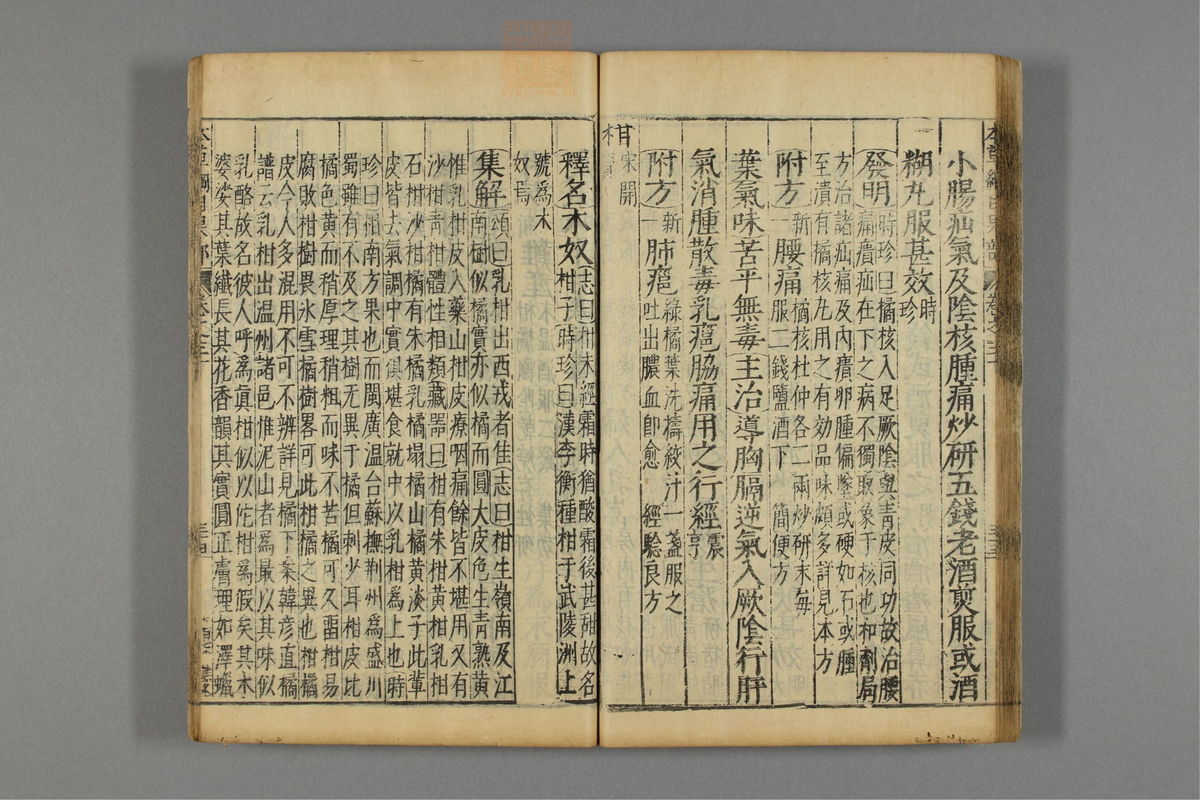 小腸疝氣及陰核腫痛炒研五錢老酒煎服或酒
糊丸服甚效時珍
發明時珍曰橘核入足厥陰與青皮同功故治腰
痛㿉疝在下之病不獨取象于核也和劑局
方治諸疝痛及內㿉卵腫偏墜或硬如石或腫
至潰有橘核丸用之有効品味頗多詳見本方
附方新一腰痛橘核杜仲各二兩炒研末每
服二錢鹽酒下 簡便方
葉氣味苦平無毒主治導胸膈逆氣入厥陰行肝
氣消腫散毒乳癰脇痛用之行經震亨
附方新一肺癰綠橘葉洗擣絞汁一盞服之
吐出膿血即愈 經驗良方
柑宋開
釋名木奴志曰柑未經霜時猶酸霜後甚甜故名
柑子時珍曰漢李衡種柑于武陵洲上
號為木
奴焉
集解頌曰乳柑出西戎者佳志曰柑生嶺南及江
南樹似橘實亦似橘而圓大皮色生青熟黃
惟乳柑皮入藥山柑皮療咽痛餘皆不堪用又有
沙柑青柑體性相類藏器曰柑有朱柑黃柑乳柑
石柑沙柑橘有朱橘乳橘塌橘山橘黃淡子此輩
皮皆去氣調中實俱堪食就中以乳柑為上也時
珍曰柑南方果也而閩廣溫台蘇撫荆州為盛川
蜀雖有不及之其樹無異于橘但刺少耳柑皮比
橘色黃而稍厚理稍粗而味不苦橘可久留柑易
腐敗柑樹畏冰雪橘樹畧可此柑橘之異也柑橘
皮今人多混用不可不辨詳見橘下案韓彥直橘
譜云乳柑出溫州諸邑惟泥山者為最以其味似
乳酪故名彼人呼為眞柑似以佗柑為假矣其木
婆娑其葉纖長其花香韻其實圓正膚理如澤蠟